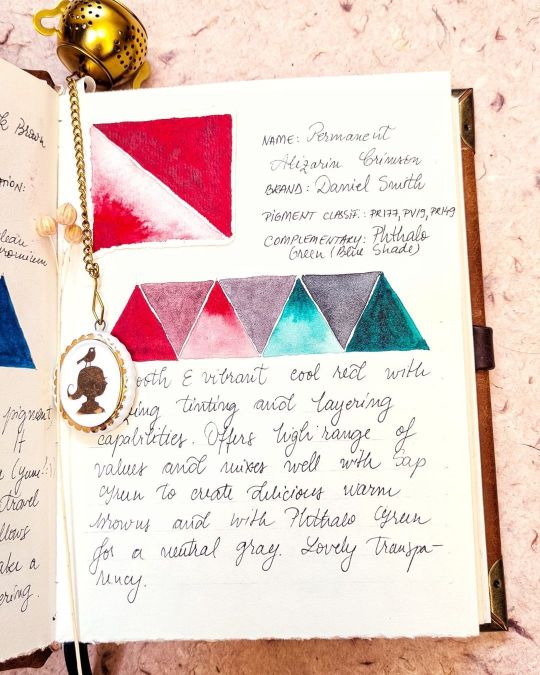 k Brown
TION:
lean
romium
pigment
It
travel
llows
ake a
ering.
NAME: Permanent
Alizarin Crimson
BRAND: Daniel Smith
PIGMENT CLASSIF.: PR177, PV19, PR149
COMPLEMENTARY: Phthalo
Green (Blue Shade)
ooth & vibrant cool red with
tinting and layering
capabilities. Offers high range of
values and mixes well with Sap
Green to create delicious warm
browns and with Phthalo Green
for a neutral gray. Lovely Transpa-
rency.